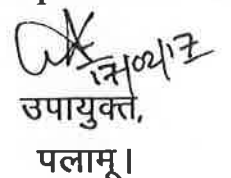 17/02/17
उपायुक्त,
पलामू।